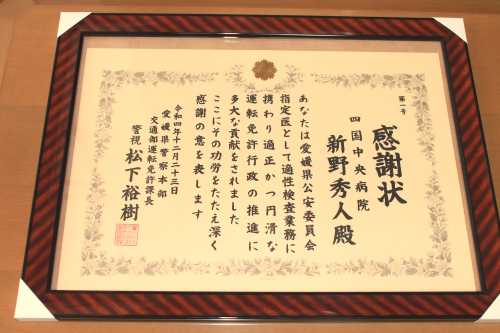 第一号
感謝状
四国中央病院
新野秀人殿
あなたは愛媛県公安委員会
指定医として適性検査業務に
携わり適正かつ円滑な
運転免許行政の推進に
多大な貢献をされました
ここにその功労をたたえ深く
感謝の意を表します
令和四年十二月二十三日
愛媛県警察本部
交通部運転免許課長
警視 松下裕樹